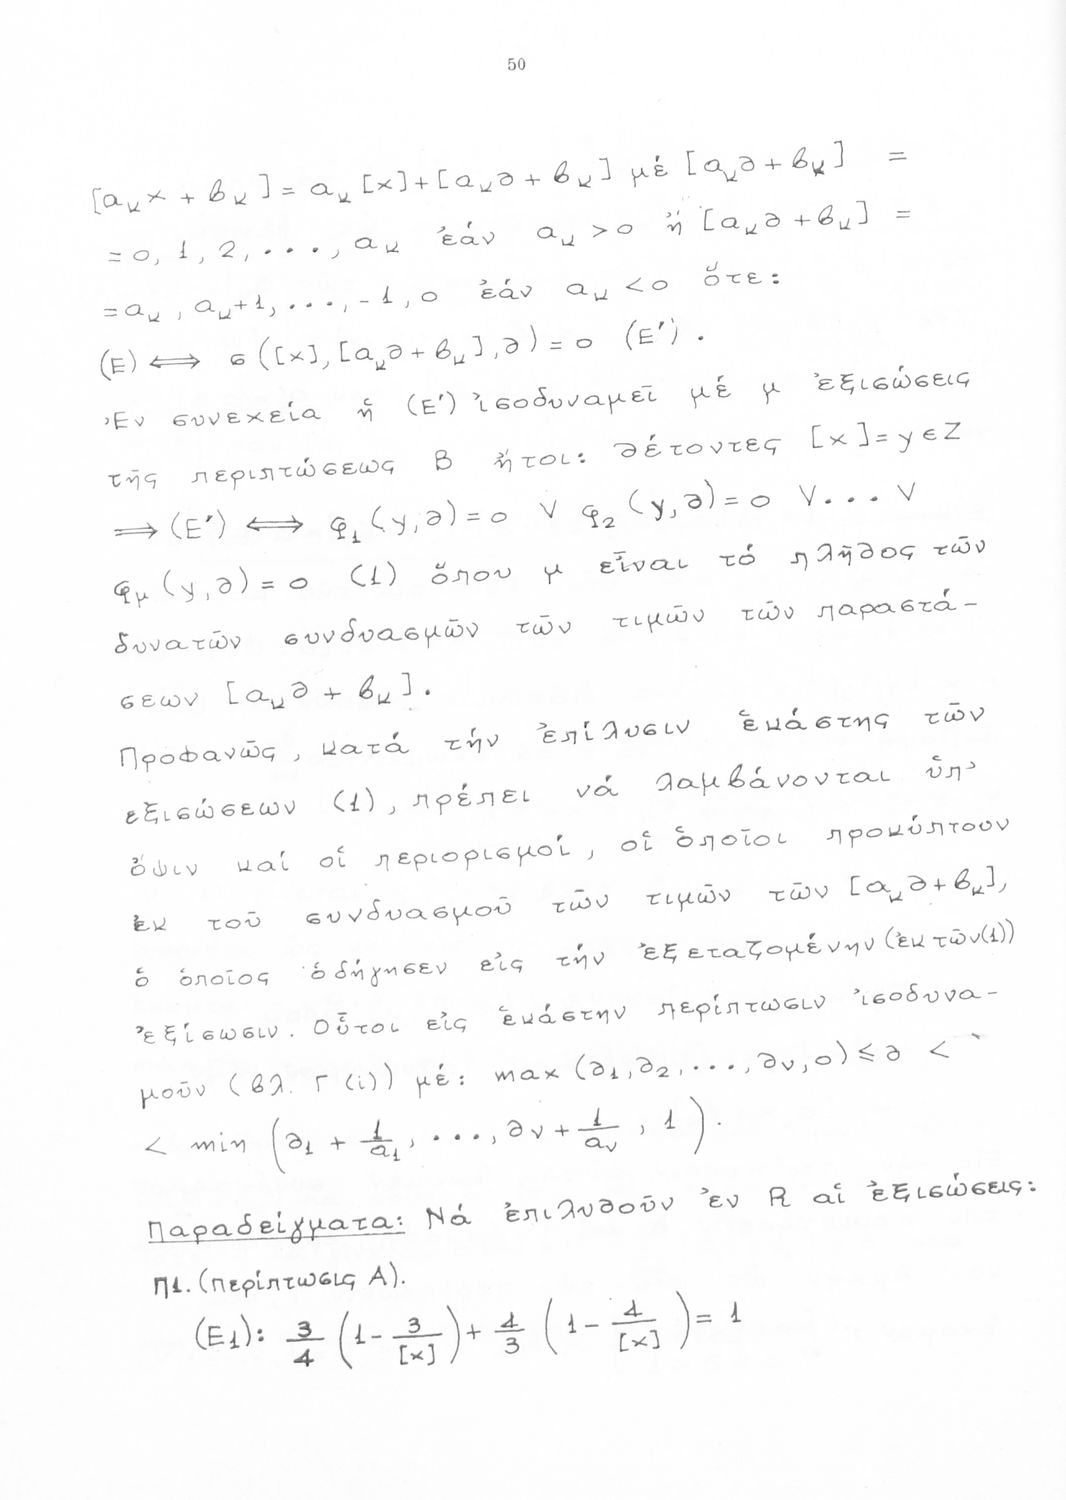 50
[α_κ x + β_κ] = α_κ [x] + [α_κ ϑ + β_κ] μέ [α_κ ϑ + β_κ] =
= 0, 1, 2, ..., α_κ ἐάν α_κ > 0 ἤ [α_κ ϑ + β_κ] =
= α_κ, α_κ+1, ..., -1, 0 ἐάν α_κ < 0 ὅτε:
(Ε) ⟺ σ([x], [α_κ ϑ + β_κ], ϑ) = 0 (Ε').
Ἐν συνεχεία ἡ (Ε') ἰσοδυναμεῖ μέ μ ἐξισώσεις
τῆς περιπτώσεως Β ἤτοι: ϑέτοντες [x] = y ∈ Z
⟹ (Ε') ⟺ φ_1(y,ϑ) = 0 V φ_2(y,ϑ) = 0 V... V
φ_μ(y,ϑ) = 0 (1) ὅπου μ εἶναι τό πλῆϑος τῶν
δυνατῶν συνδυασμῶν τῶν τιμῶν τῶν παραστά-
σεων [α_κ ϑ + β_κ].
Προφανῶς, κατά τήν ἐπίλυσιν ἑκάστης τῶν
ἐξισώσεων (1), πρέπει νά λαμβάνονται ὑπ'
ὄψιν καί οἱ περιορισμοί, οἱ ὁποῖοι προκύπτουν
ἐκ τοῦ συνδυασμοῦ τῶν τιμῶν τῶν [α_κ ϑ + β_κ],
ὁ ὁποῖος ὁδήγησεν εἰς τήν ἐξεταζομένην (ἐκ τῶν (1))
ἐξίσωσιν. Οὗτοι εἰς ἑκάστην περίπτωσιν ἰσοδυνα-
μοῦν (βλ. Γ (i)) μέ: max (ϑ_1, ϑ_2, ..., ϑ_ν, 0) ≤ ϑ <
< min (ϑ_1 + 1/α_1, ..., ϑ_ν + 1/α_ν, 1).
Παραδείγματα: Νά ἐπιλυϑοῦν ἐν R αἱ ἐξισώσεις:
Π1. (περίπτωσις Α).
(Ε1): 3/4 (1 - 3/[x]) + 4/3 (1 - 4/[x]) = 1